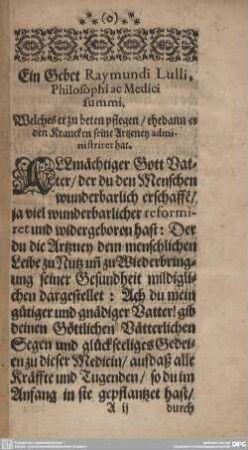 (o)
Ein Gebet Raymundi Lulli,
Philosophi ac Medici
summi,
Welches er zu beten pflegen / ehe dann er
den Krancken seine Artzeney admi-
nistriret hat.
ALLmächtiger Gott Vat-
ter / der du den Menschen
wunderbarlich erschafft /
ja viel wunderbarlicher reformi-
ret und widergeboren hast: Der
du die Artzney dem menschlichen
Leibe zu Nutz uñ zu Wiederbring-
ung seiner Gesundheit mildigli-
chen dargestellet: Ach du mein
gütiger und gnädiger Vatter! gib
deinen Göttlichen Vätterlichen
Segen und glückseeliges Gedei-
en zu dieser Medicin / auf daß alle
Kräffte und Tugenden / so du im
Anfang in sie gepflantzet hast /
A ij durch